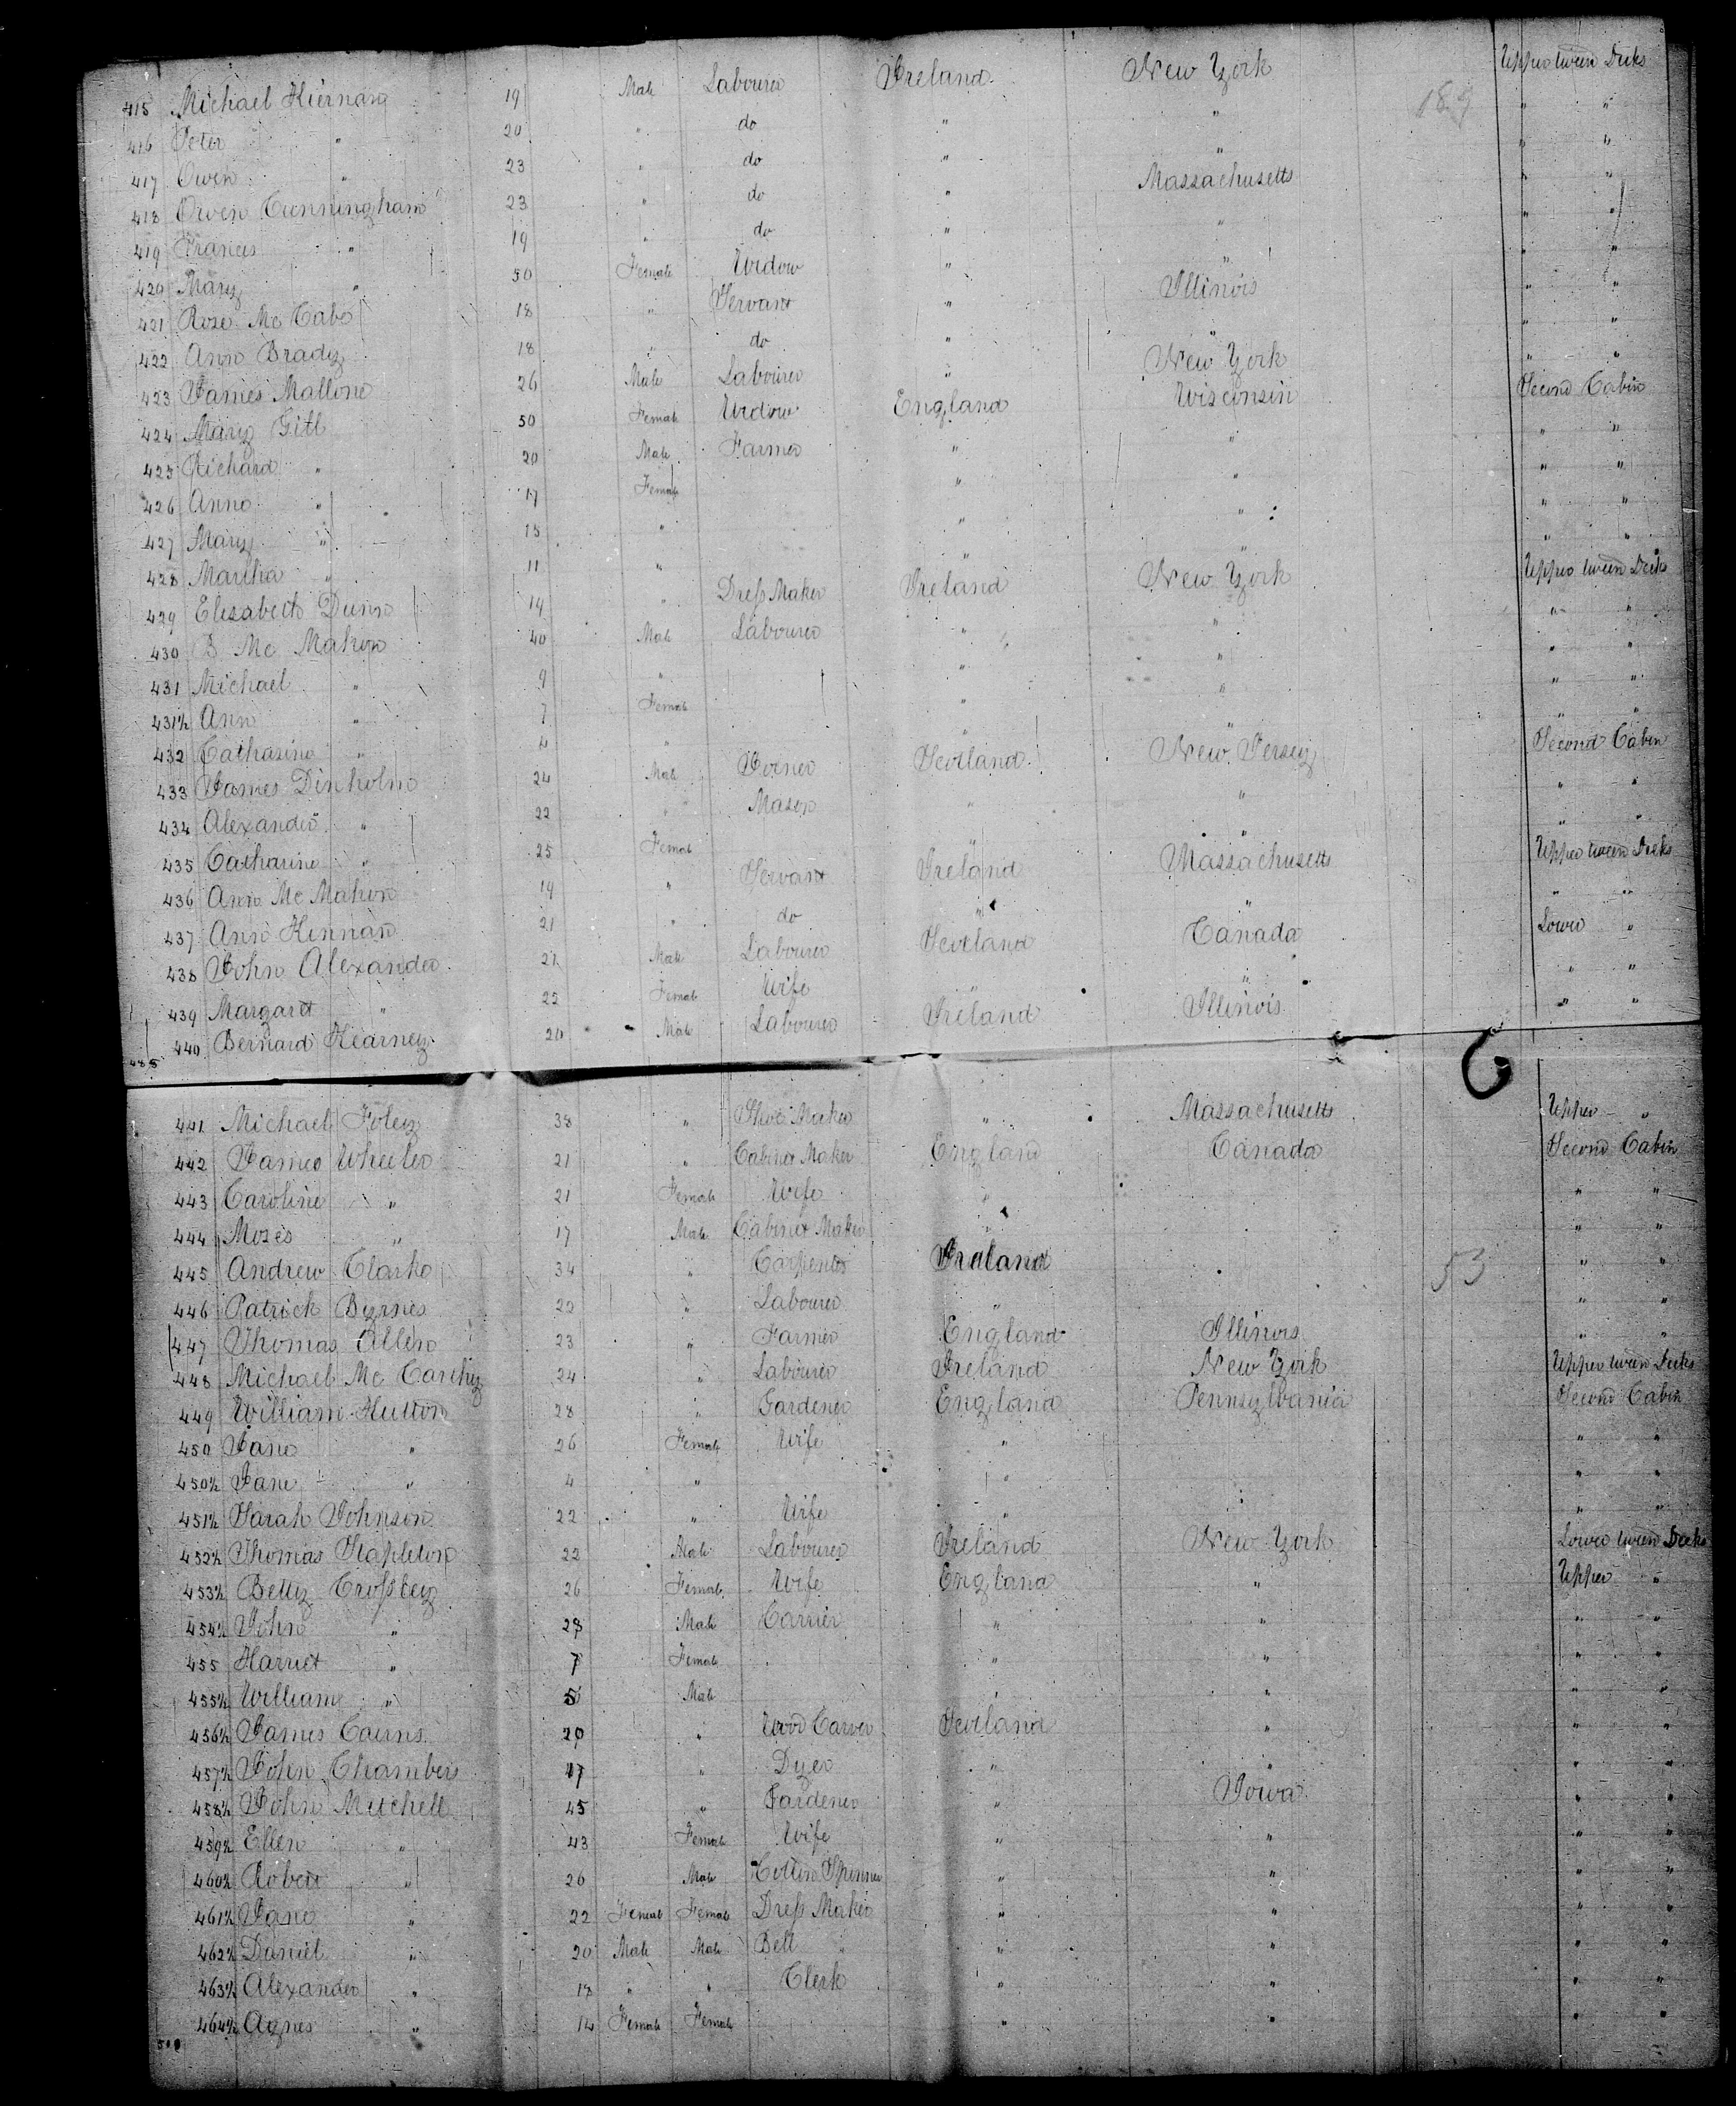 415 Michael Kiernan 19 Male Labourer Ireland New York Upper tween Decks
189
416 Peter " 20 " do " " " "
417 Owen " 23 " do " " " "
418 Owen Cunningham 23 " do " Massachusetts " "
419 Francis " 19 " do " " " "
420 Mary " 50 Female Widow " " " "
421 Rose Mc Cabe 18 " Servant " Illinois " "
422 Ann Brady 18 " do " " " "
423 James Mallone 26 Male Labourer " New York " "
424 Mary 50 Female Widow England Wisconsin Second Cabin
425 Richard " 20 Male Farmer " " " "
426 Anne " 17 Female " " " "
427 Mary " 15 " " " " "
428 Martha " 11 " " " " "
429 Elisabeth Dunn 19 " Dress Maker Ireland New York Upper tween Decks
430 B Mc Mahon 40 Male Labourer " " " "
431 Michael " 9 " " " " "
431½ Ann " 7 Female " " " "
432 Catharine " 4 " " " " "
433 James Dinholm 24 Male Joiner Scotland New Jersey Second Cabin
434 Alexander " 22 " Mason " " " "
435 Catharine " 25 Female " " " "
436 Ann Mc Mahon 19 " Servant Ireland Massachusetts Upper tween Decks
437 Ann Kinnan 21 " do " " " "
438 John Alexander 21 Male Labourer Scotland Canada Lower "
439 Margaret " 22 Female Wife " " " "
440 Bernard Kearney 20 Male Labourer Ireland Illinois " "
485
441 Michael Foley 38 " Shoe Maker " Massachusetts Upper "
442 James Wheeler 21 " Cabinet Maker England Canada Second Cabin
443 Caroline " 21 Female Wife " " "
444 Moses " 17 Male Cabinet Maker " " "
445 Andrew Clarke 34 " Carpenter Ireland " "
53
446 Patrick Byrnes 22 " Labourer " " "
447 Thomas Allen 23 " Farmer England Illinois " "
448 Michael Mc Carthy 24 " Labourer Ireland New York Upper tween Decks
449 William Hutton 28 " Gardener England Pennsylvania Second Cabin
450 Jane " 26 Female Wife " " "
450½ Jane " 4 " " " "
451½ Sarah Johnson 22 " Wife " " "
452½ Thomas Stapleton 22 Male Labourer Ireland New York Lower tween Decks
453½ Betty Crossley 26 Female Wife England " Upper "
454½ John " 28 Male Carrier " " " "
455 Harriet " 7 Female " " " "
455½ William " 5 Male " " " "
456½ James Cairns 20 " Wood Carver Scotland " " "
457½ John Chambers 17 " Dyer " " " "
458½ John Mitchell 45 " Gardener " Iowa " "
459½ Ellen " 43 Female Wife " " " "
460½ Robert " 26 Male Cotton Spinner " " " "
461½ Jane " 22 Female Female Dress Maker " " " "
462½ Daniel " 20 Male Male Belt " " " " "
463½ Alexander " 18 " " Clerk " " " "
464½ Agnes " 14 Female Female " " " "